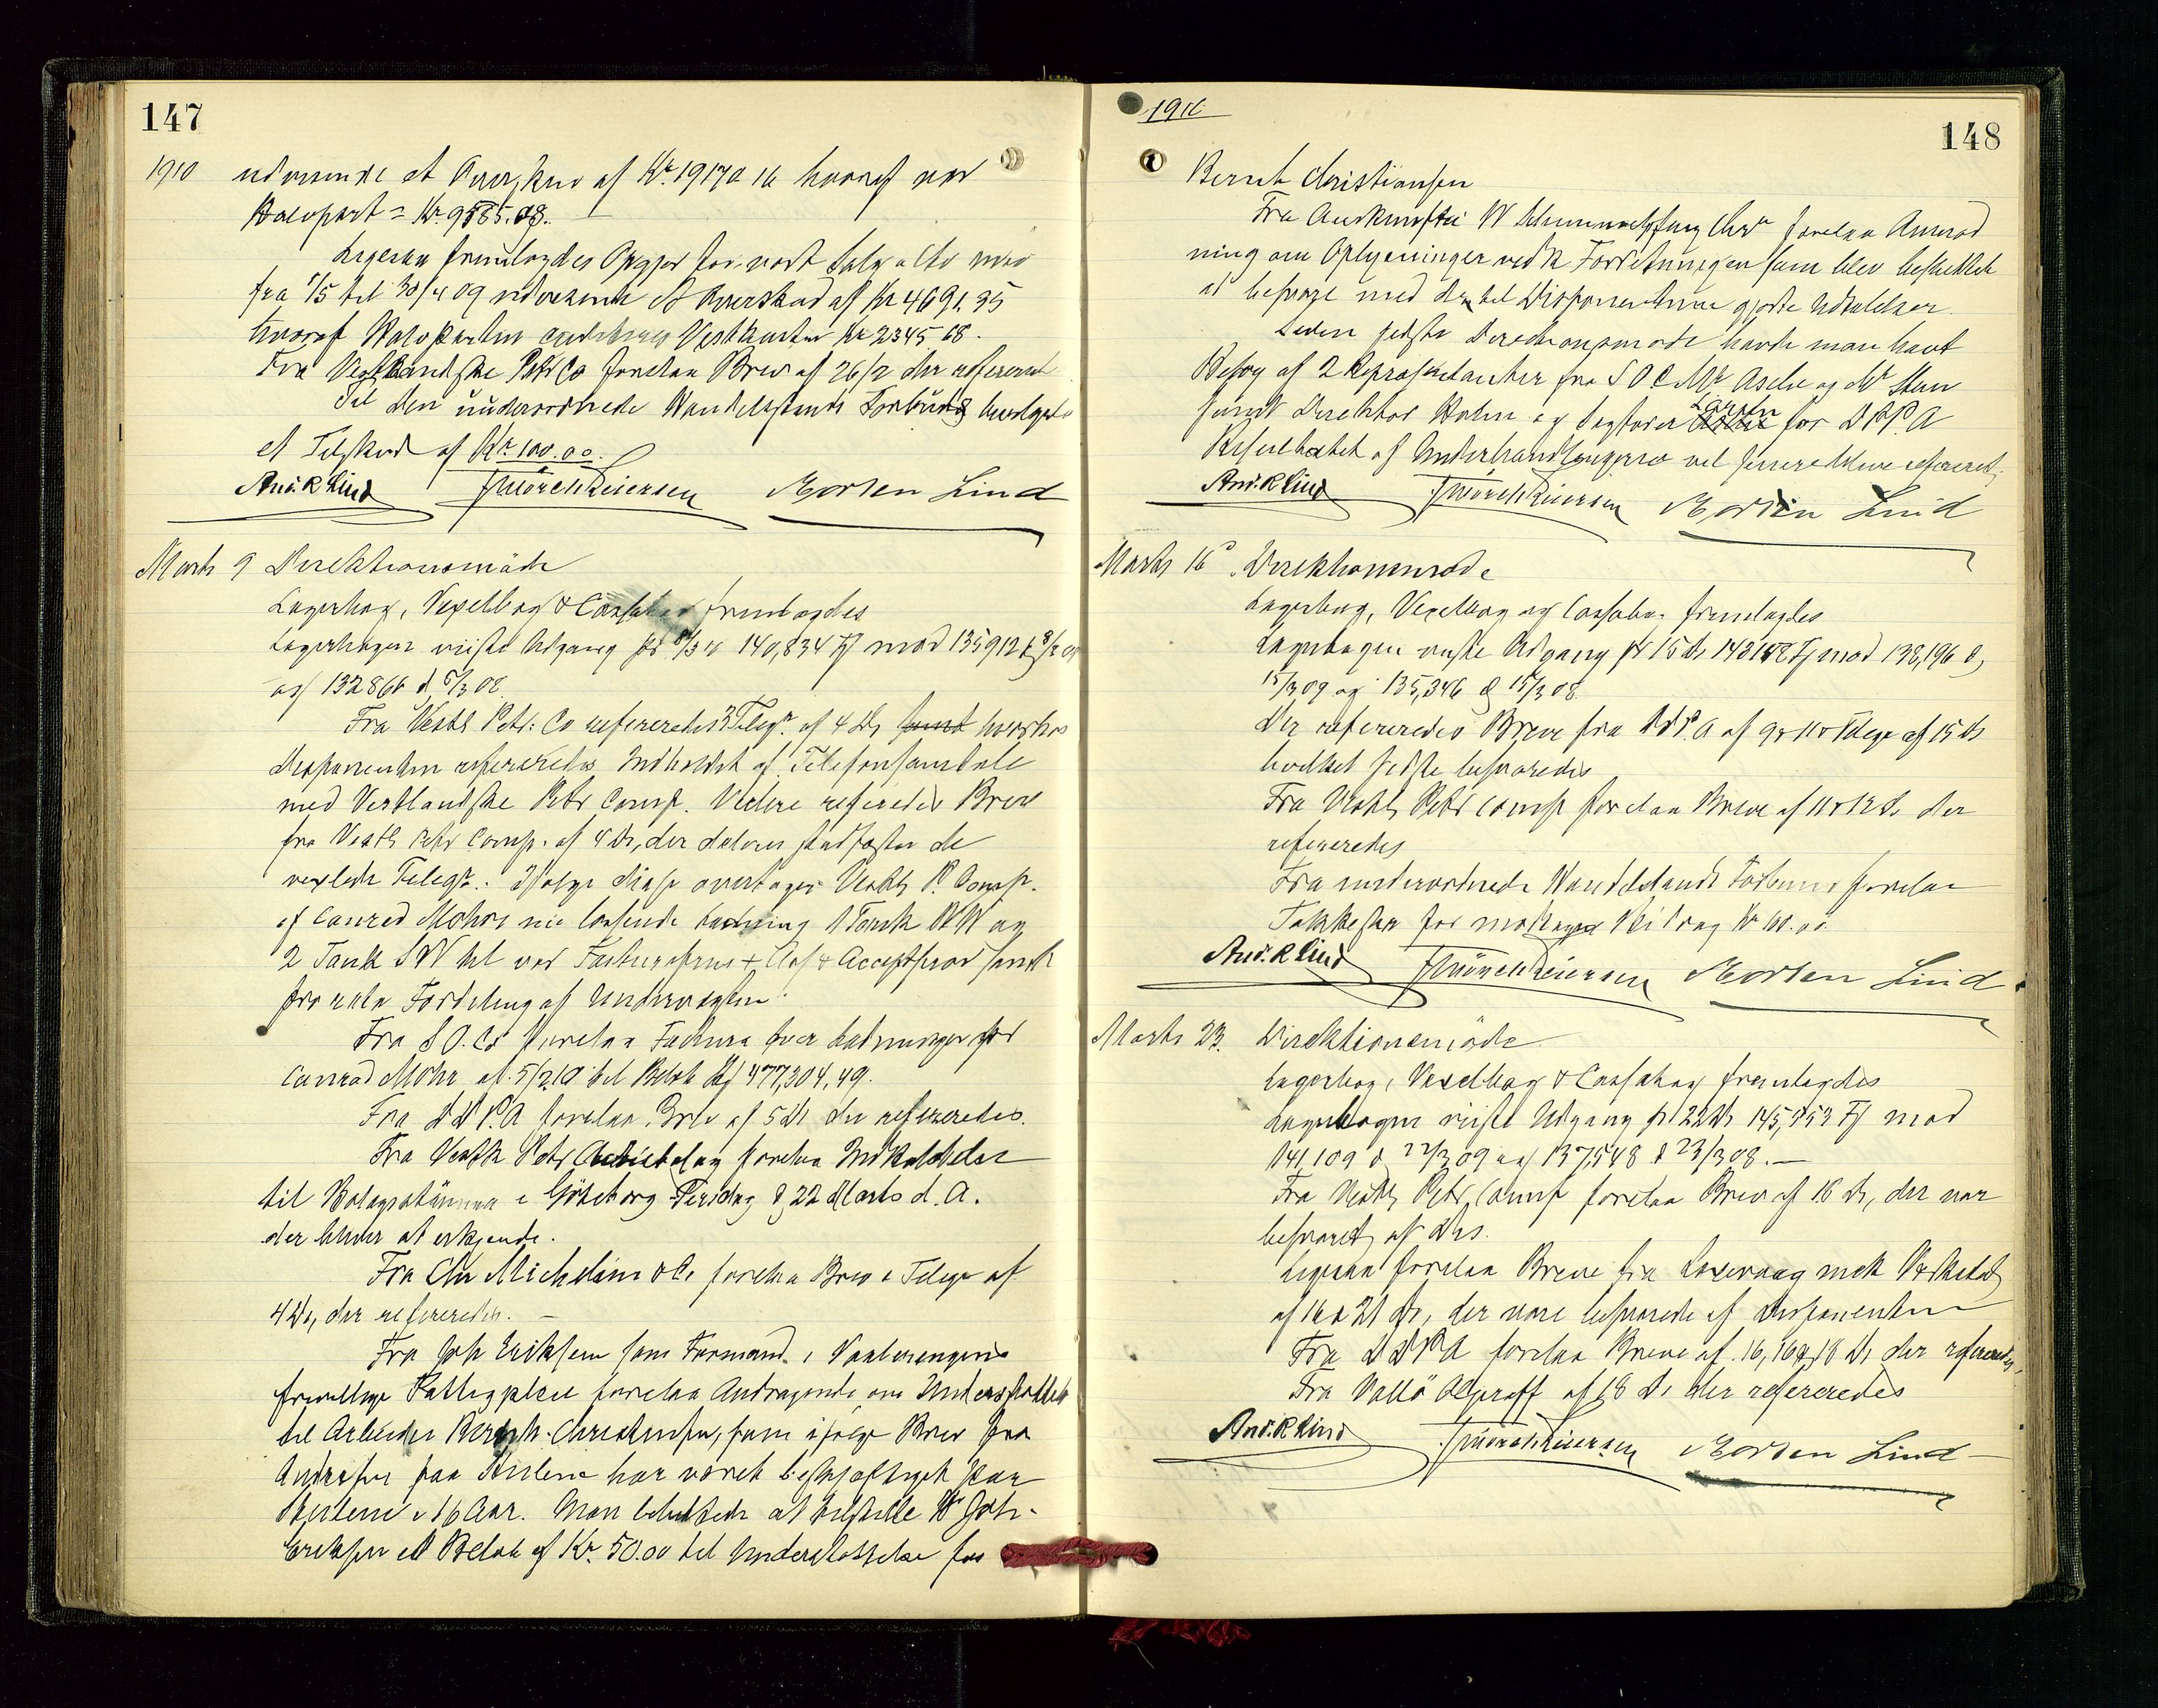 147
1910 udvisende et Overskud af Kr 19170 16 hvoraf vor
Halvpart = Kr. 9585.08.
Ligesaa fremlagdes Opgjør for vort Salg
fra 1/5 til 30/4 09 udvisende et Overskud af Kr 4691.35
hvoraf Halvparten Vestkanten Kr 2345.68.
Fra Vestlandske Petr Co forelaa Brev af 26/2 der refereredes
Til den underordnede Handelsstands Forbund bevilgedes
et Tilskud af Kr 100.00.
And. R Lind J Mörch Reiersen Morten Lind
Marts 9 Direktionsmöde
Lagerbog, Vexelbog & Cassabog fremlagdes
Lagerbogen viiste Udgang pr 8/3 10 140,834 Fj mod 135912 8/3 09
og 132866 08.
Fra Vestl Petr: Co refereredes 3 Telegr. af 4 Ds hvorhos
Disponenten refererede Indholdet af Telefonsamtale
med Vestlandske Petr Comp. Videre refereredes Brev
fra Vestl Petr Comp. af 4 Ds, der stadfæster de
vexlede Telegr. Ifølge disse overtager Vestl P. Comp.
af Conrad Mohrs nu lossende Ladning 1 Tank WW og
2 Tank SW til vor Fakturapris
pro rata Fordeling af Undervægten.
Fra S.O. Co forelaa Factura over Ladninger pr
Conrad Mohr af 5/2 10 til Beløb 477,304,49.
Fra D.D.P.A forelaa Brev af 5 Ds der refereredes.
Fra Vestk Petr forelaa Indkaldelse
til Bolagsstämma i Göteborg Tirsdag d 22 Marts d. A.
der bliver at erkjende.
Fra Chr Michelsen & Co forelaa Brev & Telegr af
4 Ds, der refereredes.
Fra Joh Eriksen som Formand i
frivillige Fattigpleie forelaa Andragende om Understøttelse
til Arbeider Bernh. Christiansen, som ifølge Brev fra
paa Skelene har været beskjæftiget paa
Skelene i 16 Aar. Man besluttede at tilstille Hr Joh.
Eriksen et Beløb af Kr. 50.00 til Understøttelse for
1910
148
Bernh Christiansen
Fra Auskunftei W Schimmelpfeng forelaa Anmod
ning om Oplysninger vedk Forretningen som blev besluttet
at besvare med de til Disponenterne gjorte Udtalelser.
Siden sidste Direktionsmøde havde man havt
Besøg af 2 Repræsentanter fra S O C Mr Asche og Mr
samt Direktør Holm og for D D P A
Resultatet af Underhandlingerne vil senere blive refereret.
And. R Lind J Mörch Reiersen Morten Lind
Marts 16 Direktionsmøde
Lagerbog, Vexelbog og Cassabog fremlagdes
Lagerbogen viiste Udgang pr 15 Ds Fj mod 138,196 d
15/3 09 og 135,346 d 15/3 08.
Der refereredes Breve fra D.D.P.A af 9 & 11 & Telegr af 15 Ds
hvilket sidste besvaredes
Fra Vestl Petr Comp forelaa Breve af 11 & 12 Ds der
refereredes
Fra underordnede Handelstands Forbund forelaa
Takkebrev for modtaget Bidrag Kr 100.00.
And. R Lind J Mörch Reiersen Morten Lind
Marts 23. Direktionsmöde
Lagerbog, Vexelbog & Cassabog fremlagdes
Lagerbogen viiste Udgang pr 22 Ds 145,753 Fj mod
141,109 d 22/3 09 og 137,548 d 23/3 08.
Fra Vestl Petr, Comp forelaa Brev af 16 Ds, der var
besvaret af Ds.
Ligesaa forelaa Breve fra Laxevaag mek Værksted
af 16 & 21 Ds, der vare besvarede af Disponenten
Fra D D P A forelaa Breve af 16, 16 & 18 Ds der refereredes,
Fra Vallö Oljeraff af 18 Ds der refereredes
And. R Lind J Mörch Reiersen Morten Lind